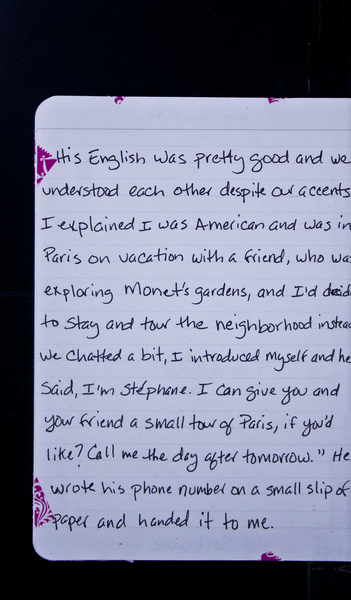 His English was pretty good and we
understood each other despite our accents
I explained I was American and was in
Paris on vacation with a friend, who was
exploring Monet's gardens, and I'd decid
to stay and tour the neighborhood instea
we chatted a bit, I introduced myself and he
said, I'm Stéphane. I can give you and
your friend a small tour of Paris, if you'd
like? Call me the day after tomorrow." He
wrote his phone number on a small slip of
paper and handed it to me.